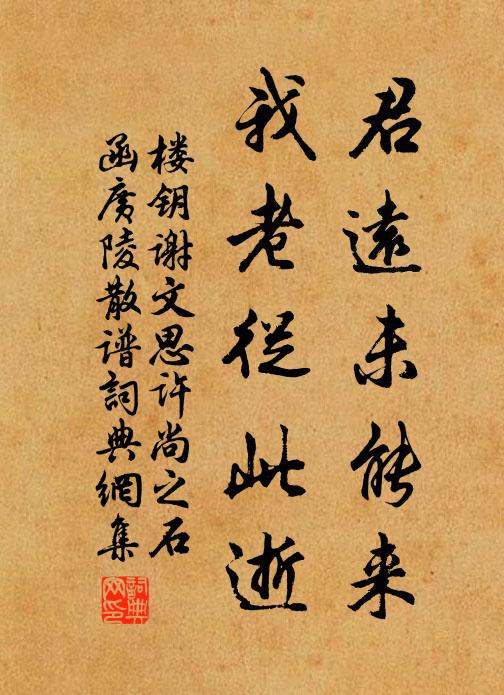 君遠未能来
我老從此逝
楼钥谢文思许尚之石
函廣陵散谱詞典網集
詞典
网印